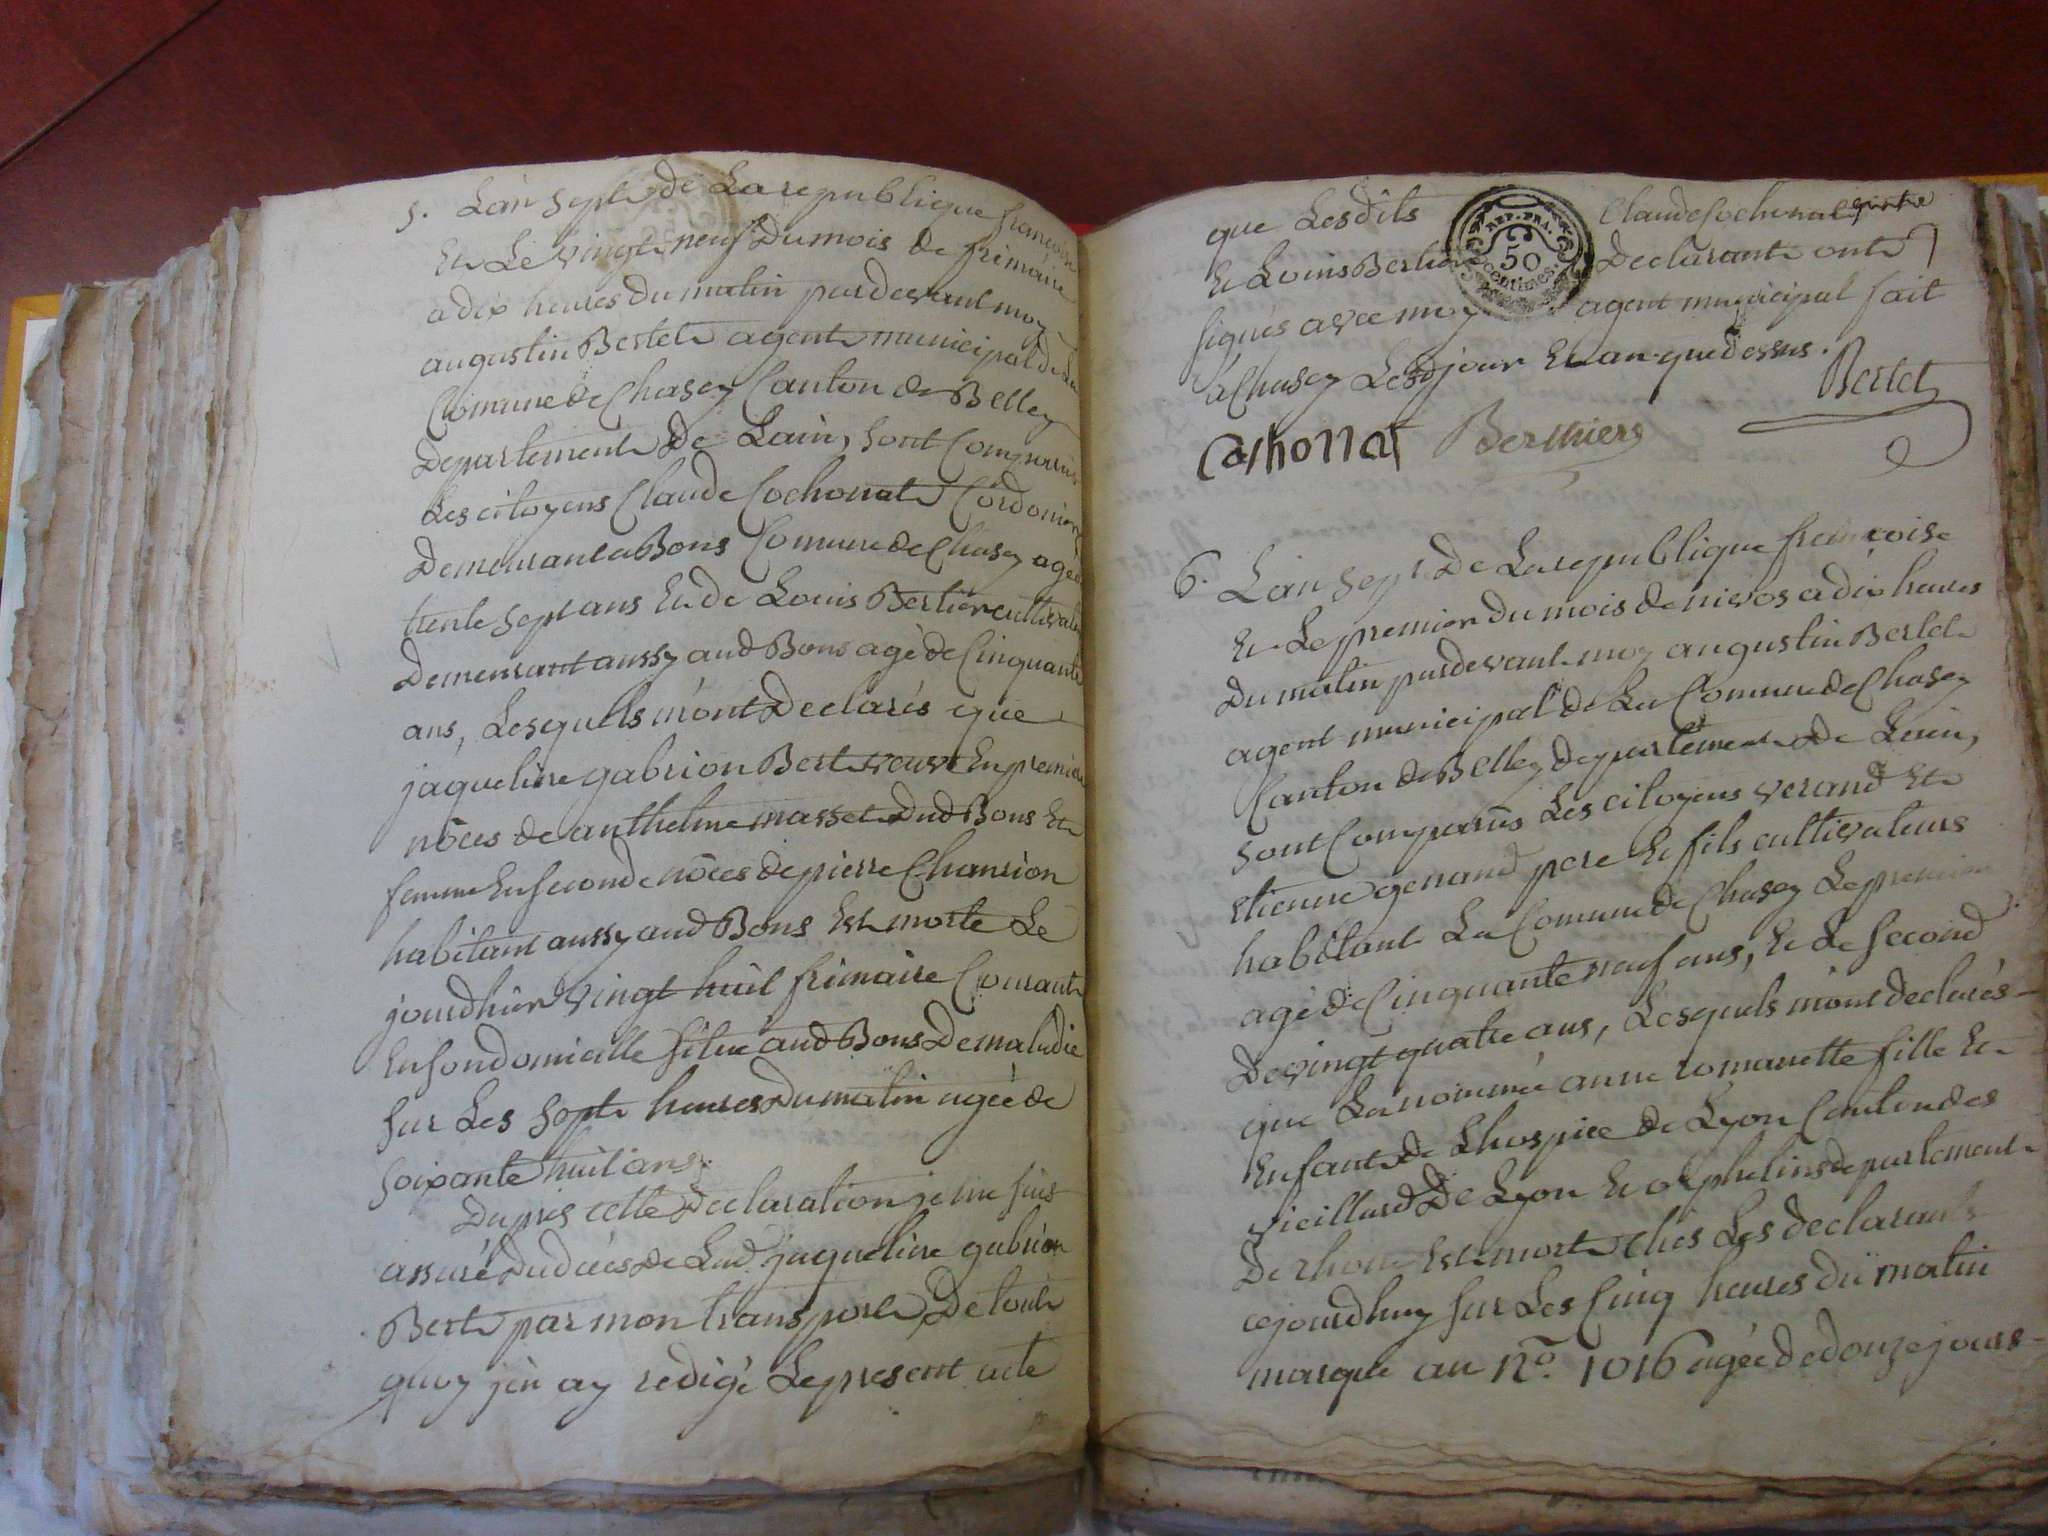 5. Lan sept de La republique françoise
Et Le vingt neuf Du mois de frimaire
a dix heures du matin pardevant moy
augustin Bertet agent municipal de La
Comune de Chasey Canton de Belley
Departement De Lain, sont Comparus
Les citoyens Claude Cochonat Cordonier
Demeurant a Bons Comune de Chasey agé de
trente sept ans Et de Louis Bertier cultivateur
Demeurant aussy aud Bons agé de Cinquante
ans, Lesquels m'ont Declarés que
jaqueline gabrion Bert veuve En premiere
nôces de anthelme masset dud Bons Et
femme En seconde nôces de pierre Chanrion
habitant aussy aud Bons Est morte Le
jourdhier vingt huit frimaire Courant
En son domicille situé aud Bons De maladie
sur Les sept heures du matin agée de
soixante huit ans.
Dapres cette Declaration je me suis
assuré du decés de Lad. jaqueline gabrion
Bert par mon transport, De tout
quoy j'en ay redigé Le present acte
que Lesdits Claude Cochonat
REP. FRA. 50 centimes.
Et Louis Bertier Declarant ont
signés avec moy agent municipal fait
a Chasey Les jour Et an que dessus.
Bertet
Cochonat Berthier
6. Lan sept De La republique francoise
Et Le premier du mois de nivos a dix heures
Du matin pardevant moy augustin Bertet
agent municipal de La Comune de Chasey
Canton de Belley departement de Lain,
sont Comparus Les citoyens verand Et
etienne genand pere Et fils cultivateurs
habitant La Comune de Chasey Le premier
agé de Cinquante neuf ans, Et Le second
De vingt quatre ans, Lesquels m'ont declarés
que La nommée anne romanette fille Et
Enfant de Lhospice de Lyon Canton des
vieillard De Lyon Et orphelins departement
De rhone Est mort chés Les declarants
cejourdhuy sur Les Cinq heures du matin
marque au No. 1016 agée de douze jours